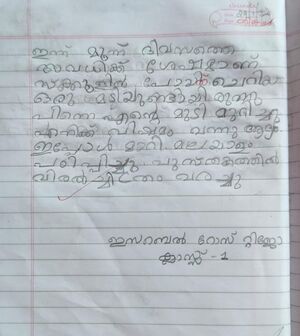 ഇന്ന് മൂന്ന് ദിവസത്തെ
അവധിക്ക് ശേഷമാണ്
സ്ക്കൂളിൽ പോയത് ചെറിയ
ഒരു മടിയുണ്ടായിരുന്നു
പിന്നെ എന്റെ മുടി മുറിച്ചു
എനിക്ക് വിഷമം വന്നു ആദ്യം
ഇപ്പോൾ മാറി മലയാളം
പഠിപ്പിച്ചു. പുസ്തകത്തിൽ
വിരൽ ചിത്രം വരച്ചു
ഇസബെൽ റോസ് റ്റിജോ
ക്ലാസ്സ് - 1